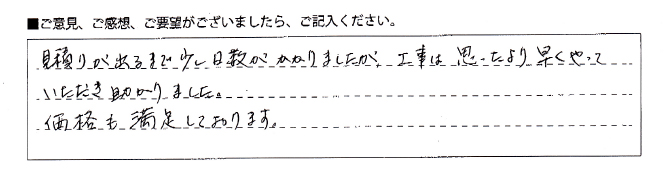 ■ご意見、ご感想、ご要望がございましたら、ご記入ください。
見積りが出るまで少し日数がかかりましたが、工事は思ったより早くやって
いただき助かりました。
価格も満足しております。